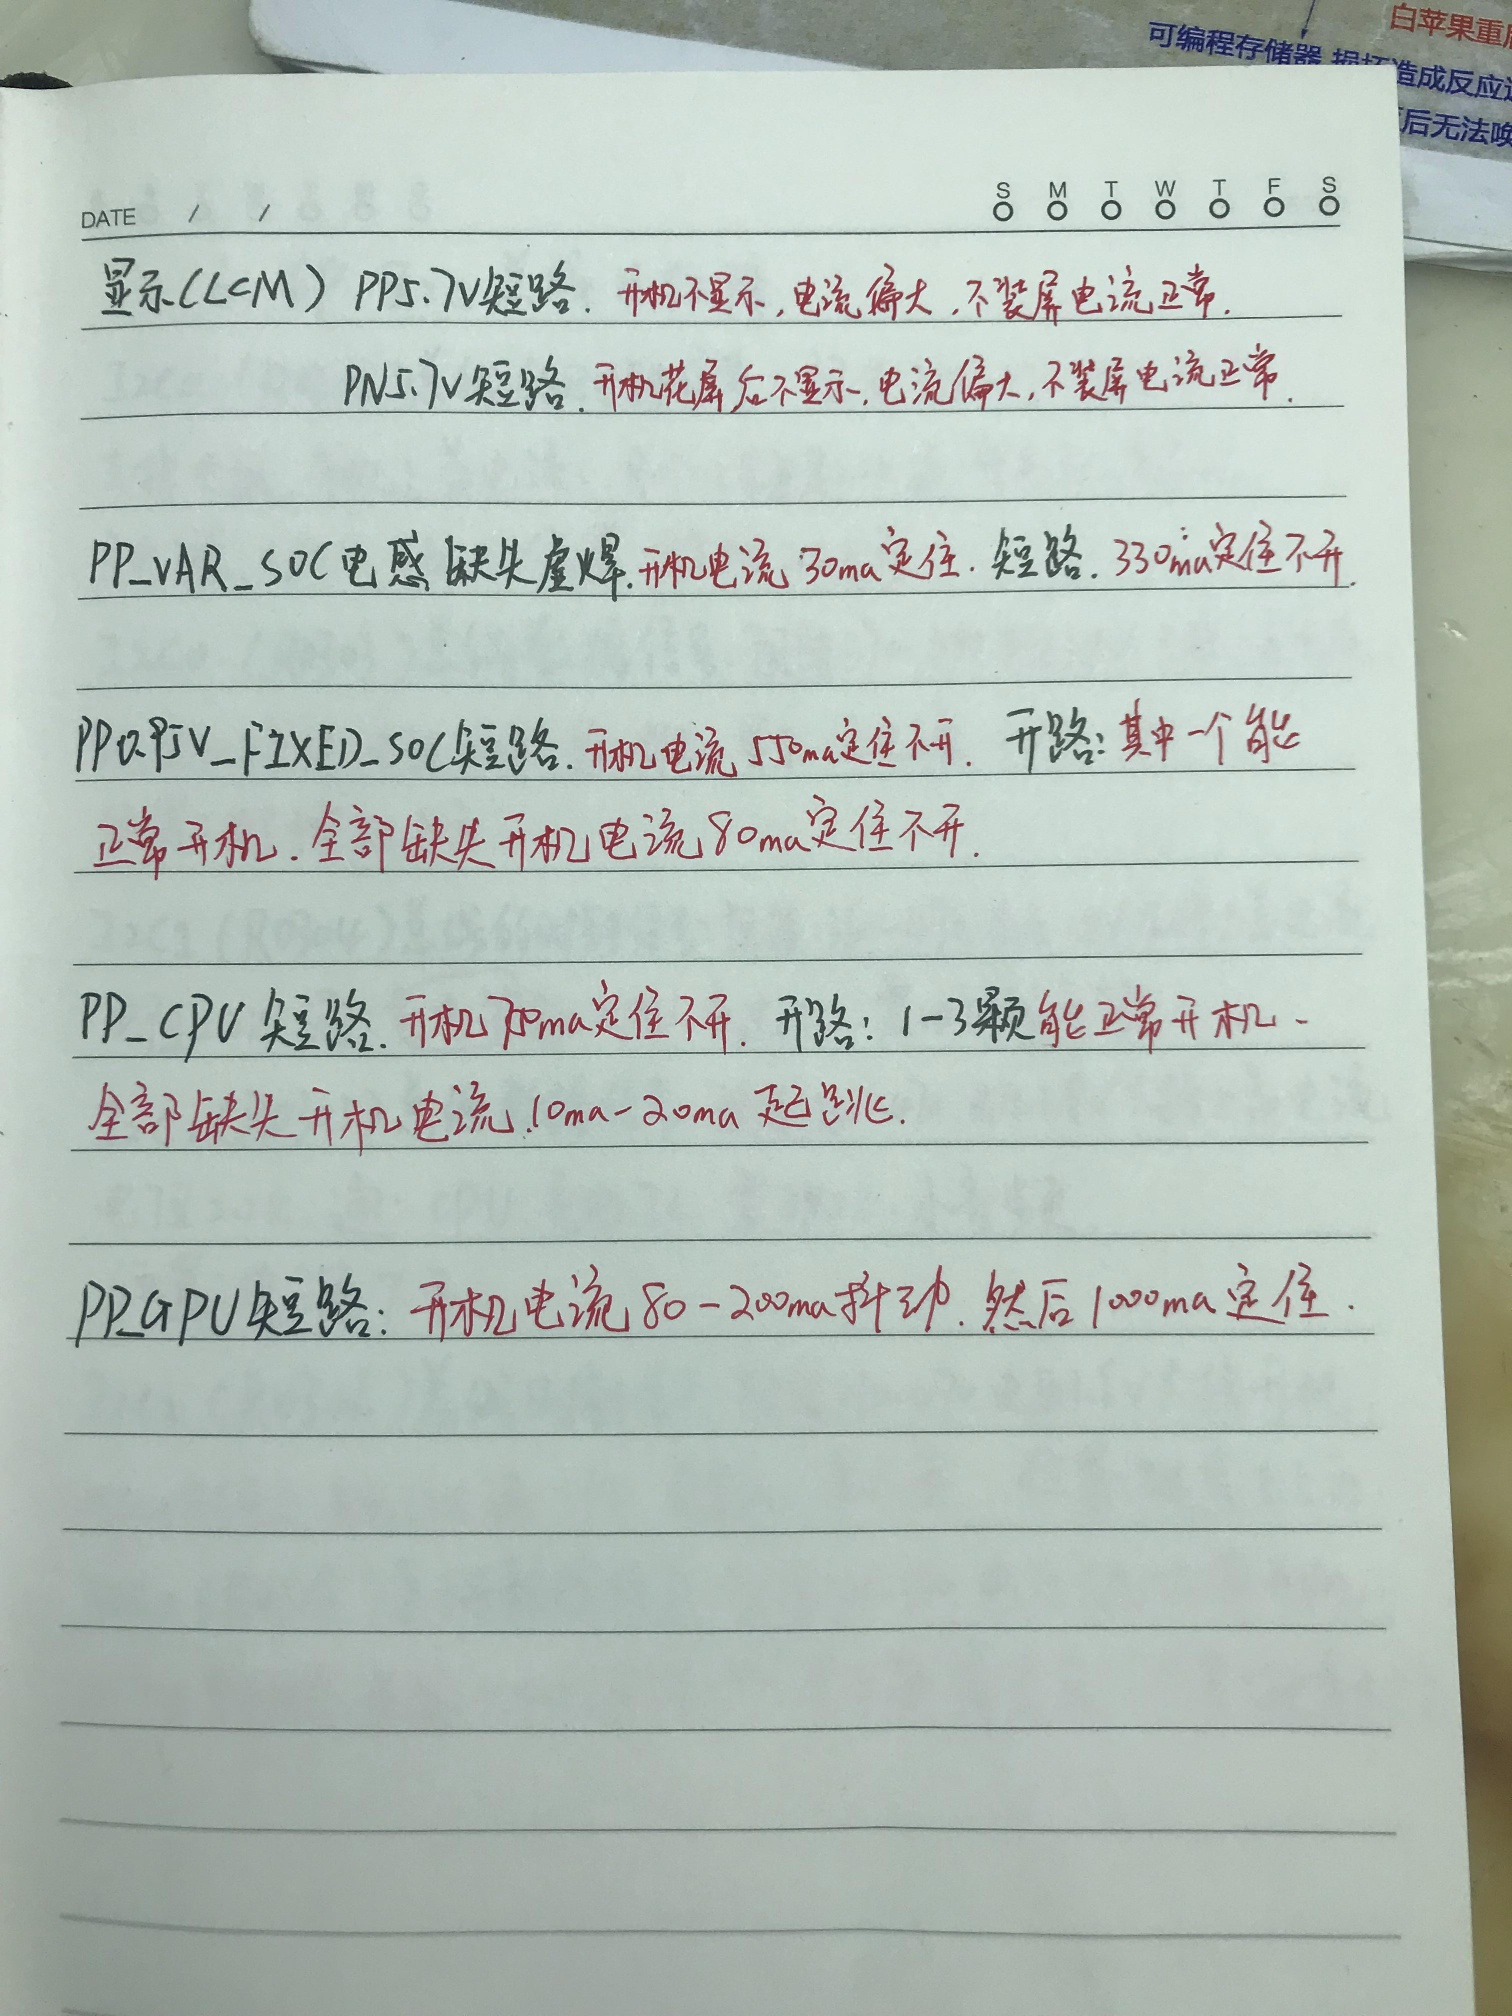 白苹果重启
可编程存储器 损坏造成反应
后无法唤
DATE / /
S M T W T F S
显示(LCM) PP5.7V短路. 开机不显示,电流偏大,不装屏电流正常.
PN5.7V短路. 开机花屏后不显示,电流偏大,不装屏电流正常.
PP_VAR_SOC电感缺失虚焊.开机电流30ma定住. 短路. 330ma定住不开.
PP0.95V_FIXED_SOC短路.开机电流550ma定住不开. 开路:其中一个能
正常开机.全部缺失开机电流80ma定住不开.
PP_CPU短路.开机750ma定住不开. 开路: 1-3颗能正常开机.
全部缺失开机电流.10ma-20ma起跳.
PP_GPU短路: 开机电流80-200ma抖动.然后1000ma定住.